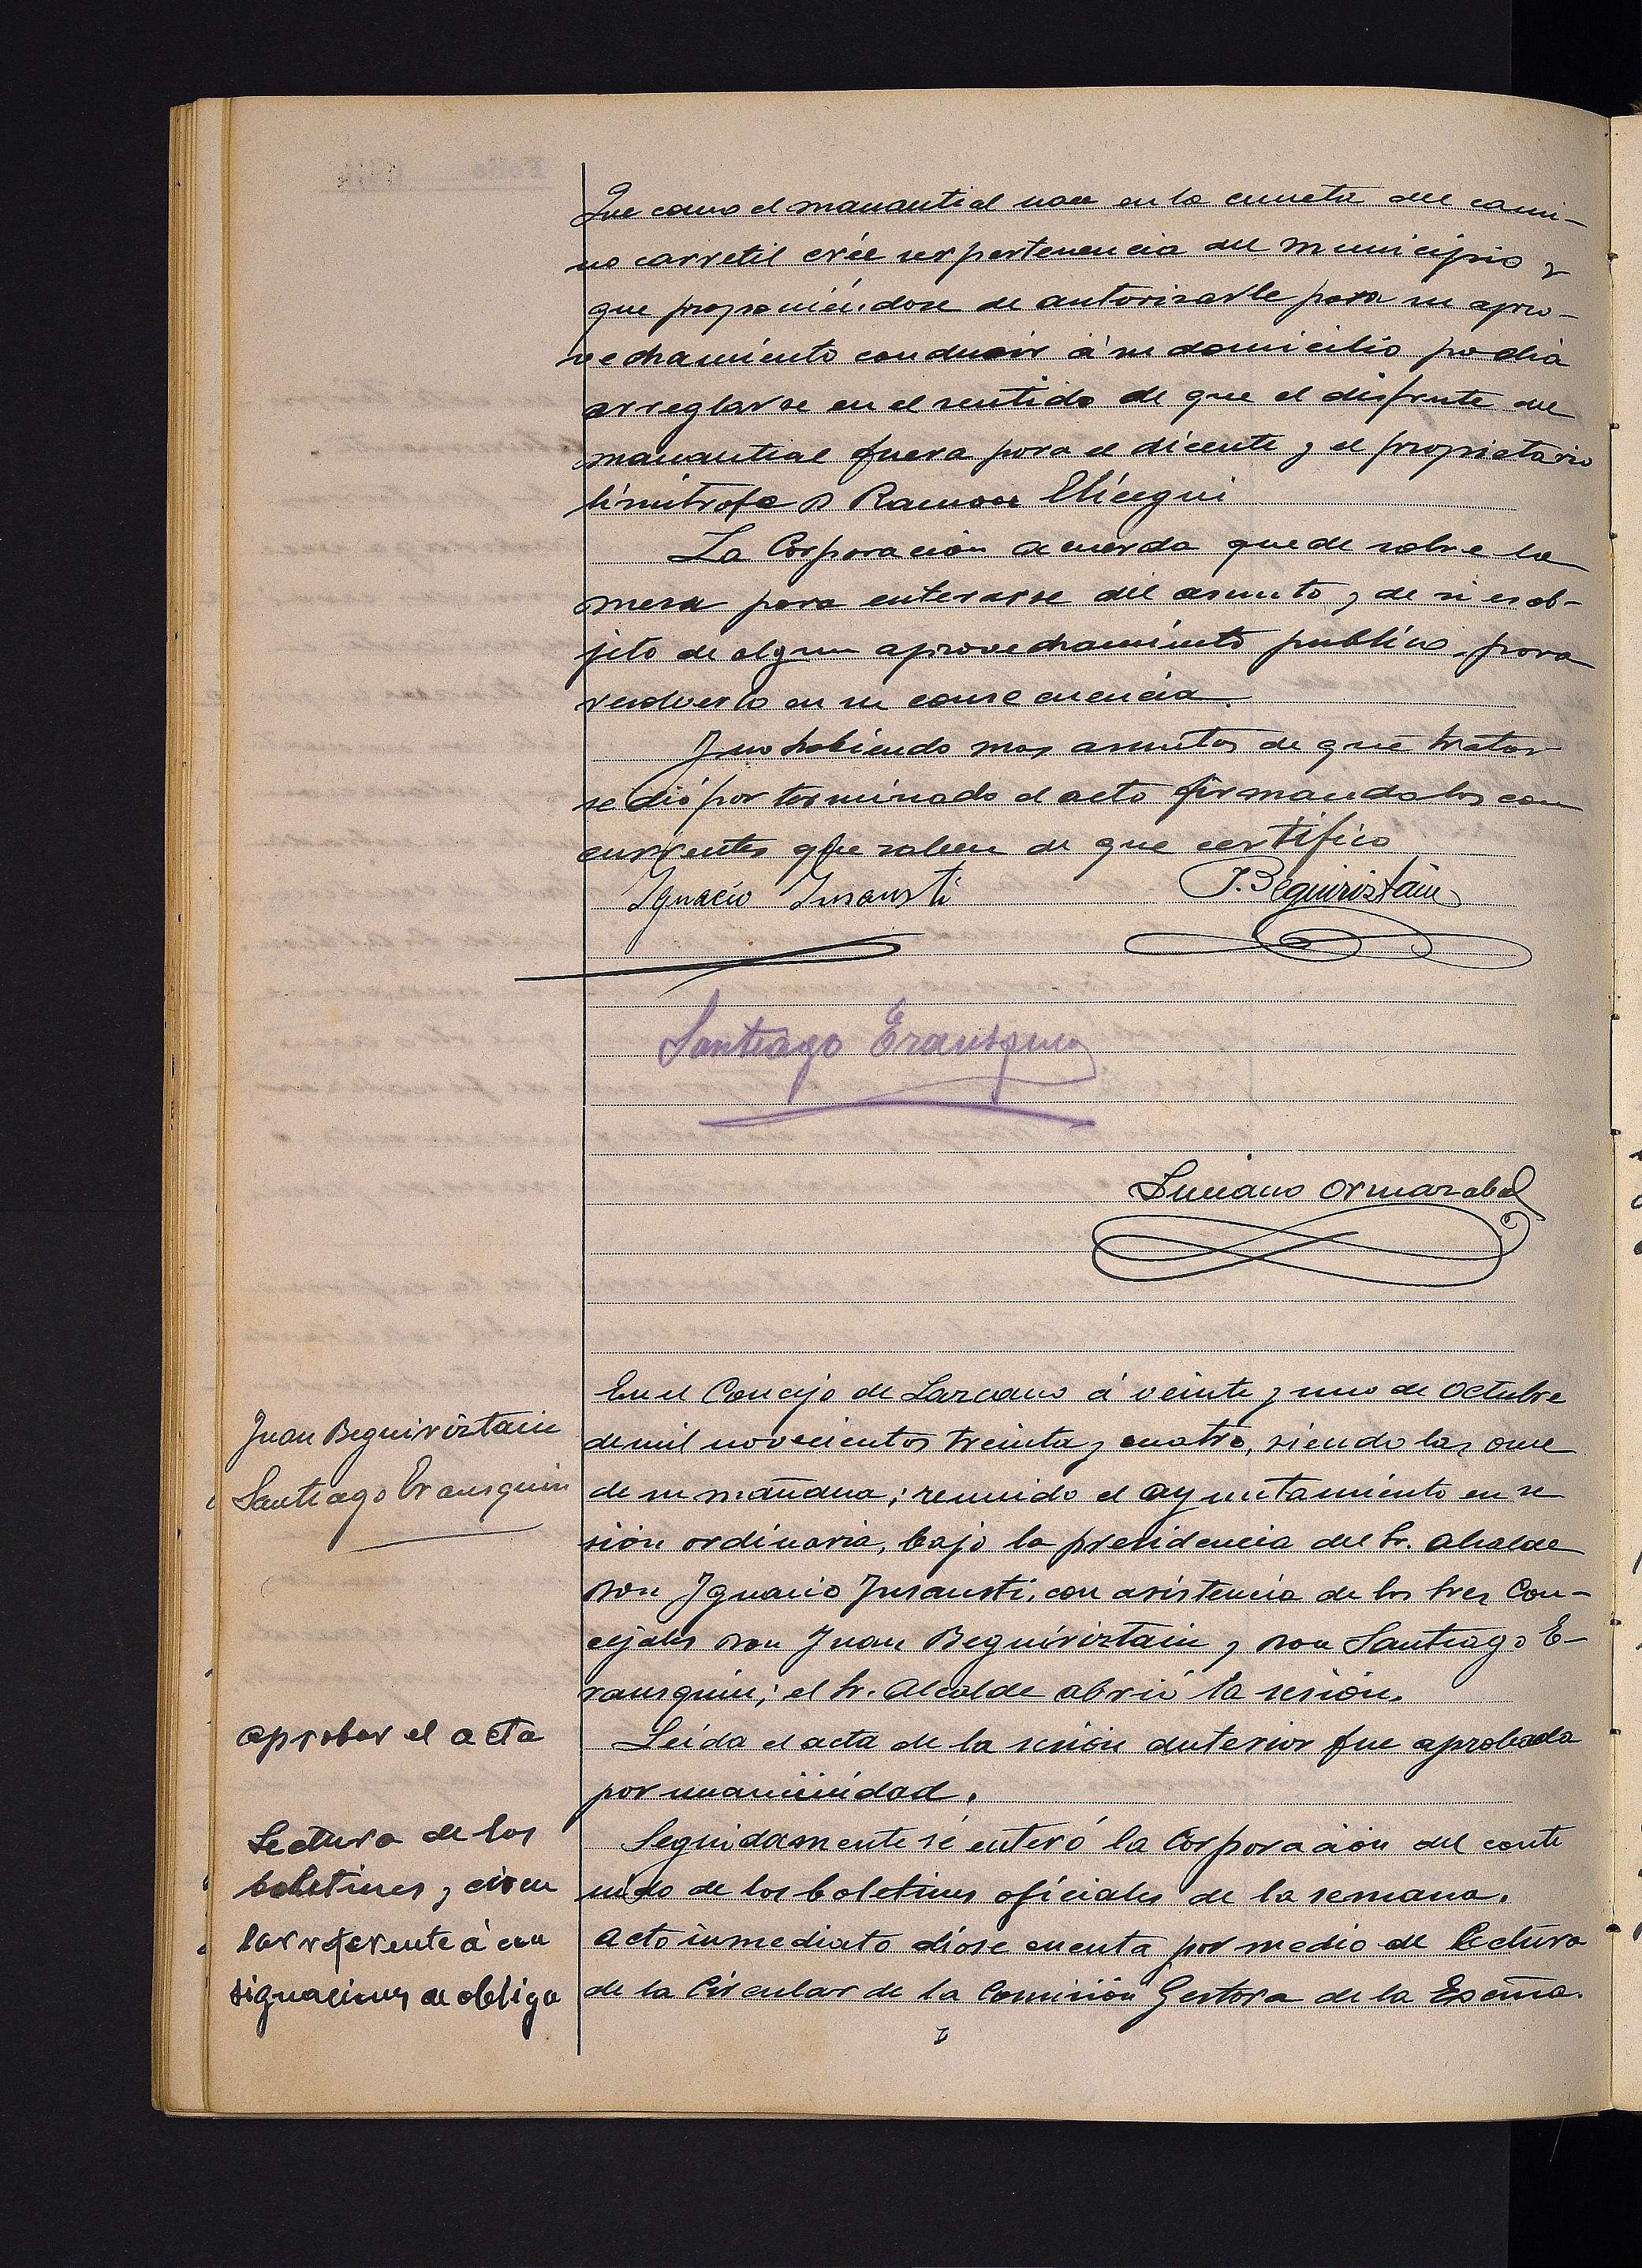 Que como el manantial nace en la cuneta del cami-
no carretil crée ser pertenencia del municipio y
que proponiéndose de autorizarle para su apro-
vechamiento conducir á su domicilio podia
arreglarse en el sentido de que el disfrute del
manantial fuera para el dicente y el propietario
limitrofe D Ramon Elicegui
La Corporacion acuerda quede sobre la
mesa para enterarse del asunto y de si es ob-
jeto de algun aprovechamiento publico, para
resolverlo en su consecuencia.
Y no habiendo mas asuntos de que tratar
se dió por terminado el acto firmando los con
currentes que saben de que certifico
Ignacio Insausti J. Beguiristain
Santiago Erausquin
Luciano Ormazabal
En el Concejo de Lazcano á veinte y uno de Octubre
de mil novecientos treinta y cuatro, siendo las once
de su mañana; reunido el ayuntamiento en se
sión ordinaria, bajo la presidencia del Sr. Alcalde
Don Ignacio Insausti, con asistencia de los Sres Con-
cejales Don Juan Beguiristain y Don Santiago E-
rausquin; el Sr. Alcalde abrió la sesión.
Juan Beguiristain
Santiago Erausquin
aprobar el acta
Leida el acta de la sesión anterior fue aprobada
por unanimidad.
Lectura de los
boletines y circu
lar referente á con
signaciones de obliga
Seguidamente se enteró la Corporación del conte
nido de los boletines oficiales de la semana.
Acto inmediato dióse cuenta por medio de lectura
de la Circular de la Comisión Gestora de la Excma.